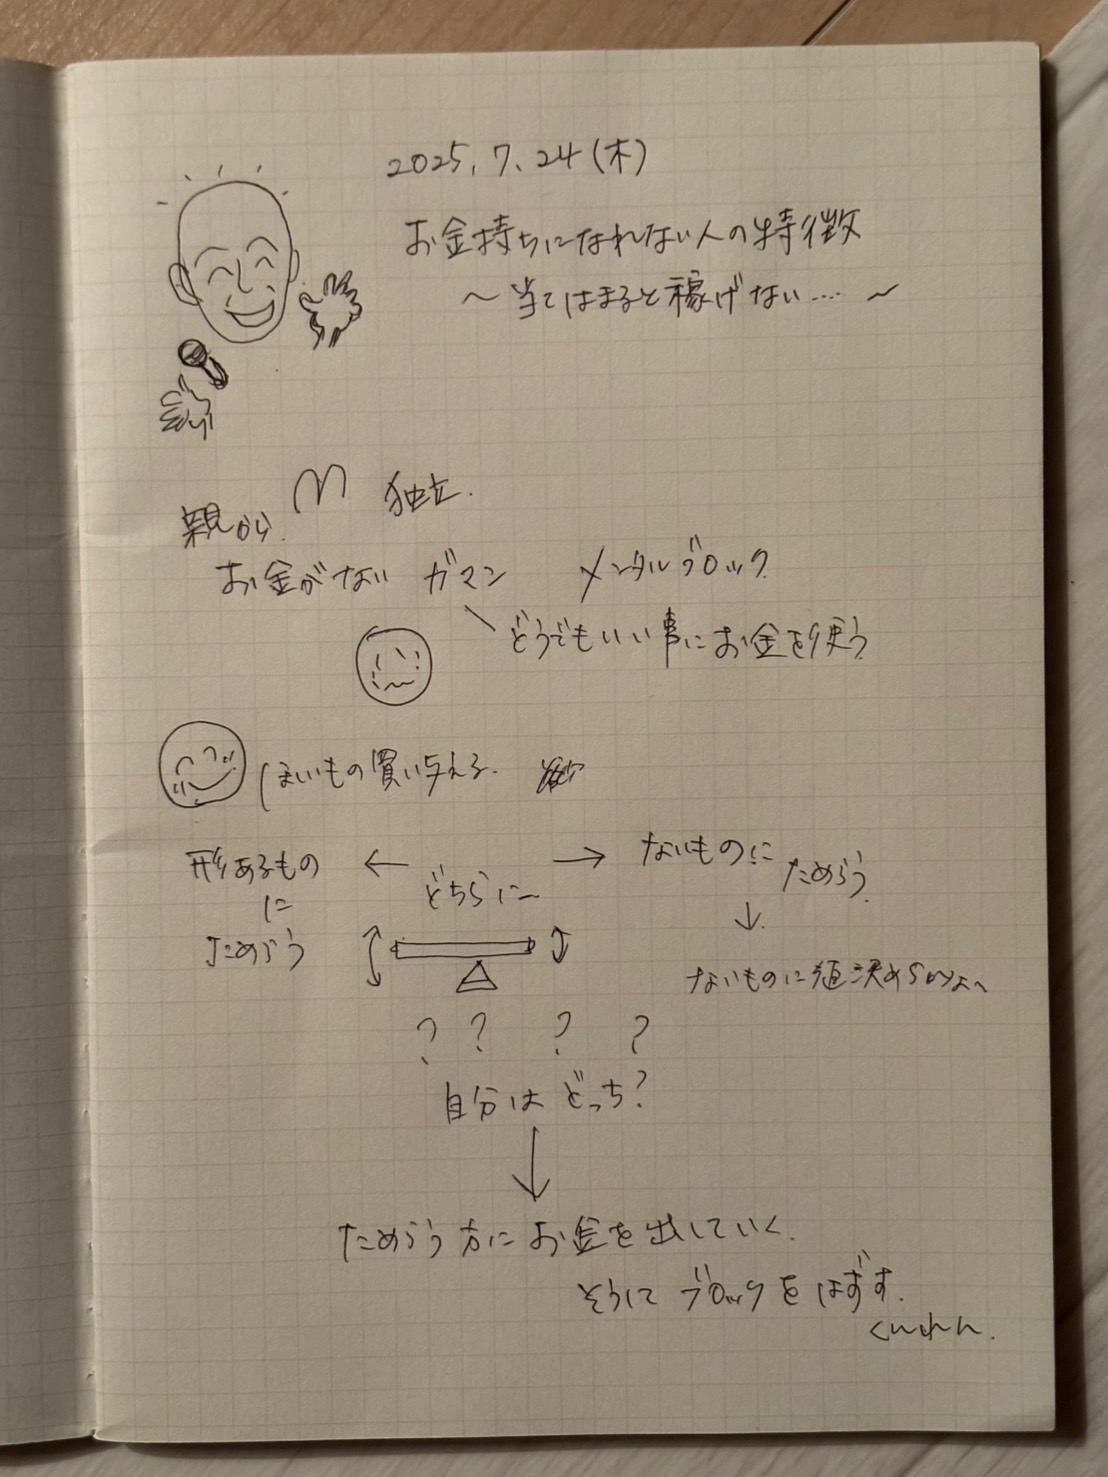 2025.7.24(木)
お金持ちになれない人の特徴
〜当てはまると稼げない....〜
親から 独立.
お金がない ガマン メンタルブロック
どうでもいい事にお金を使う
ほしいもの買い与える.
形あるもの ← どちらに → ないものに
に ためらう
ためらう ↓
ないものに値決められない
? ? ? ?
自分はどっち?
↓
ためらう方にお金を出していく.
そうしてブロックをはずす.
くんれん.